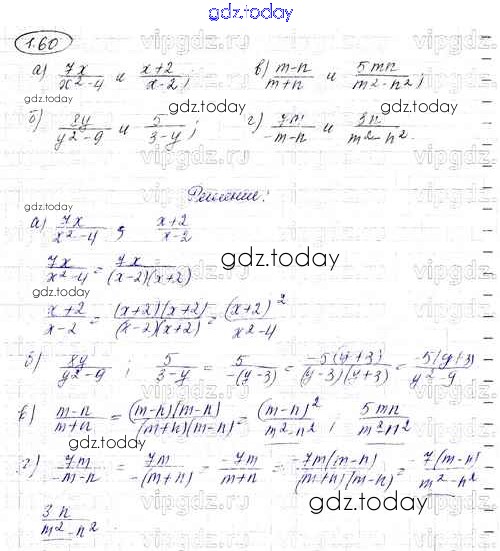 gdz.today
1.60
а) 7x/(x²-4) и (x+2)/(x-2); в) (m-n)/(m+n) и 5mn/(m²-n²);
gdz.today gdz.today
б) 8y/(y²-9) и 5/(3-y); г) 7m/(-m-n) и 3n/(m²-n²).
gdz.today gdz.today
vipgdz.ru
Решение:
gdz.today
а) 7x/(x²-4) , (x+2)/(x-2)
7x/(x²-4) = 7x/((x-2)(x+2))
gdz.today
(x+2)/(x-2) = ((x+2)(x+2))/((x-2)(x+2)) = (x+2)²/(x²-4)
б) 8y/(y²-9) ; 5/(3-y) = 5/(-(y-3)) = -5(y+3)/((y-3)(y+3)) = -5(y+3)/(y²-9)
в) (m-n)/(m+n) = ((m-n)(m-n))/((m+n)(m-n)) = (m-n)²/(m²-n²) ; 5mn/(m²n²)
г) 7m/(-m-n) = 7m/(-(m+n)) = -7m/(m+n) = -7m(m-n)/((m+n)(m-n)) = -7(m-n)/(m²-n²)
gdz.today
3n/(m²-n²).